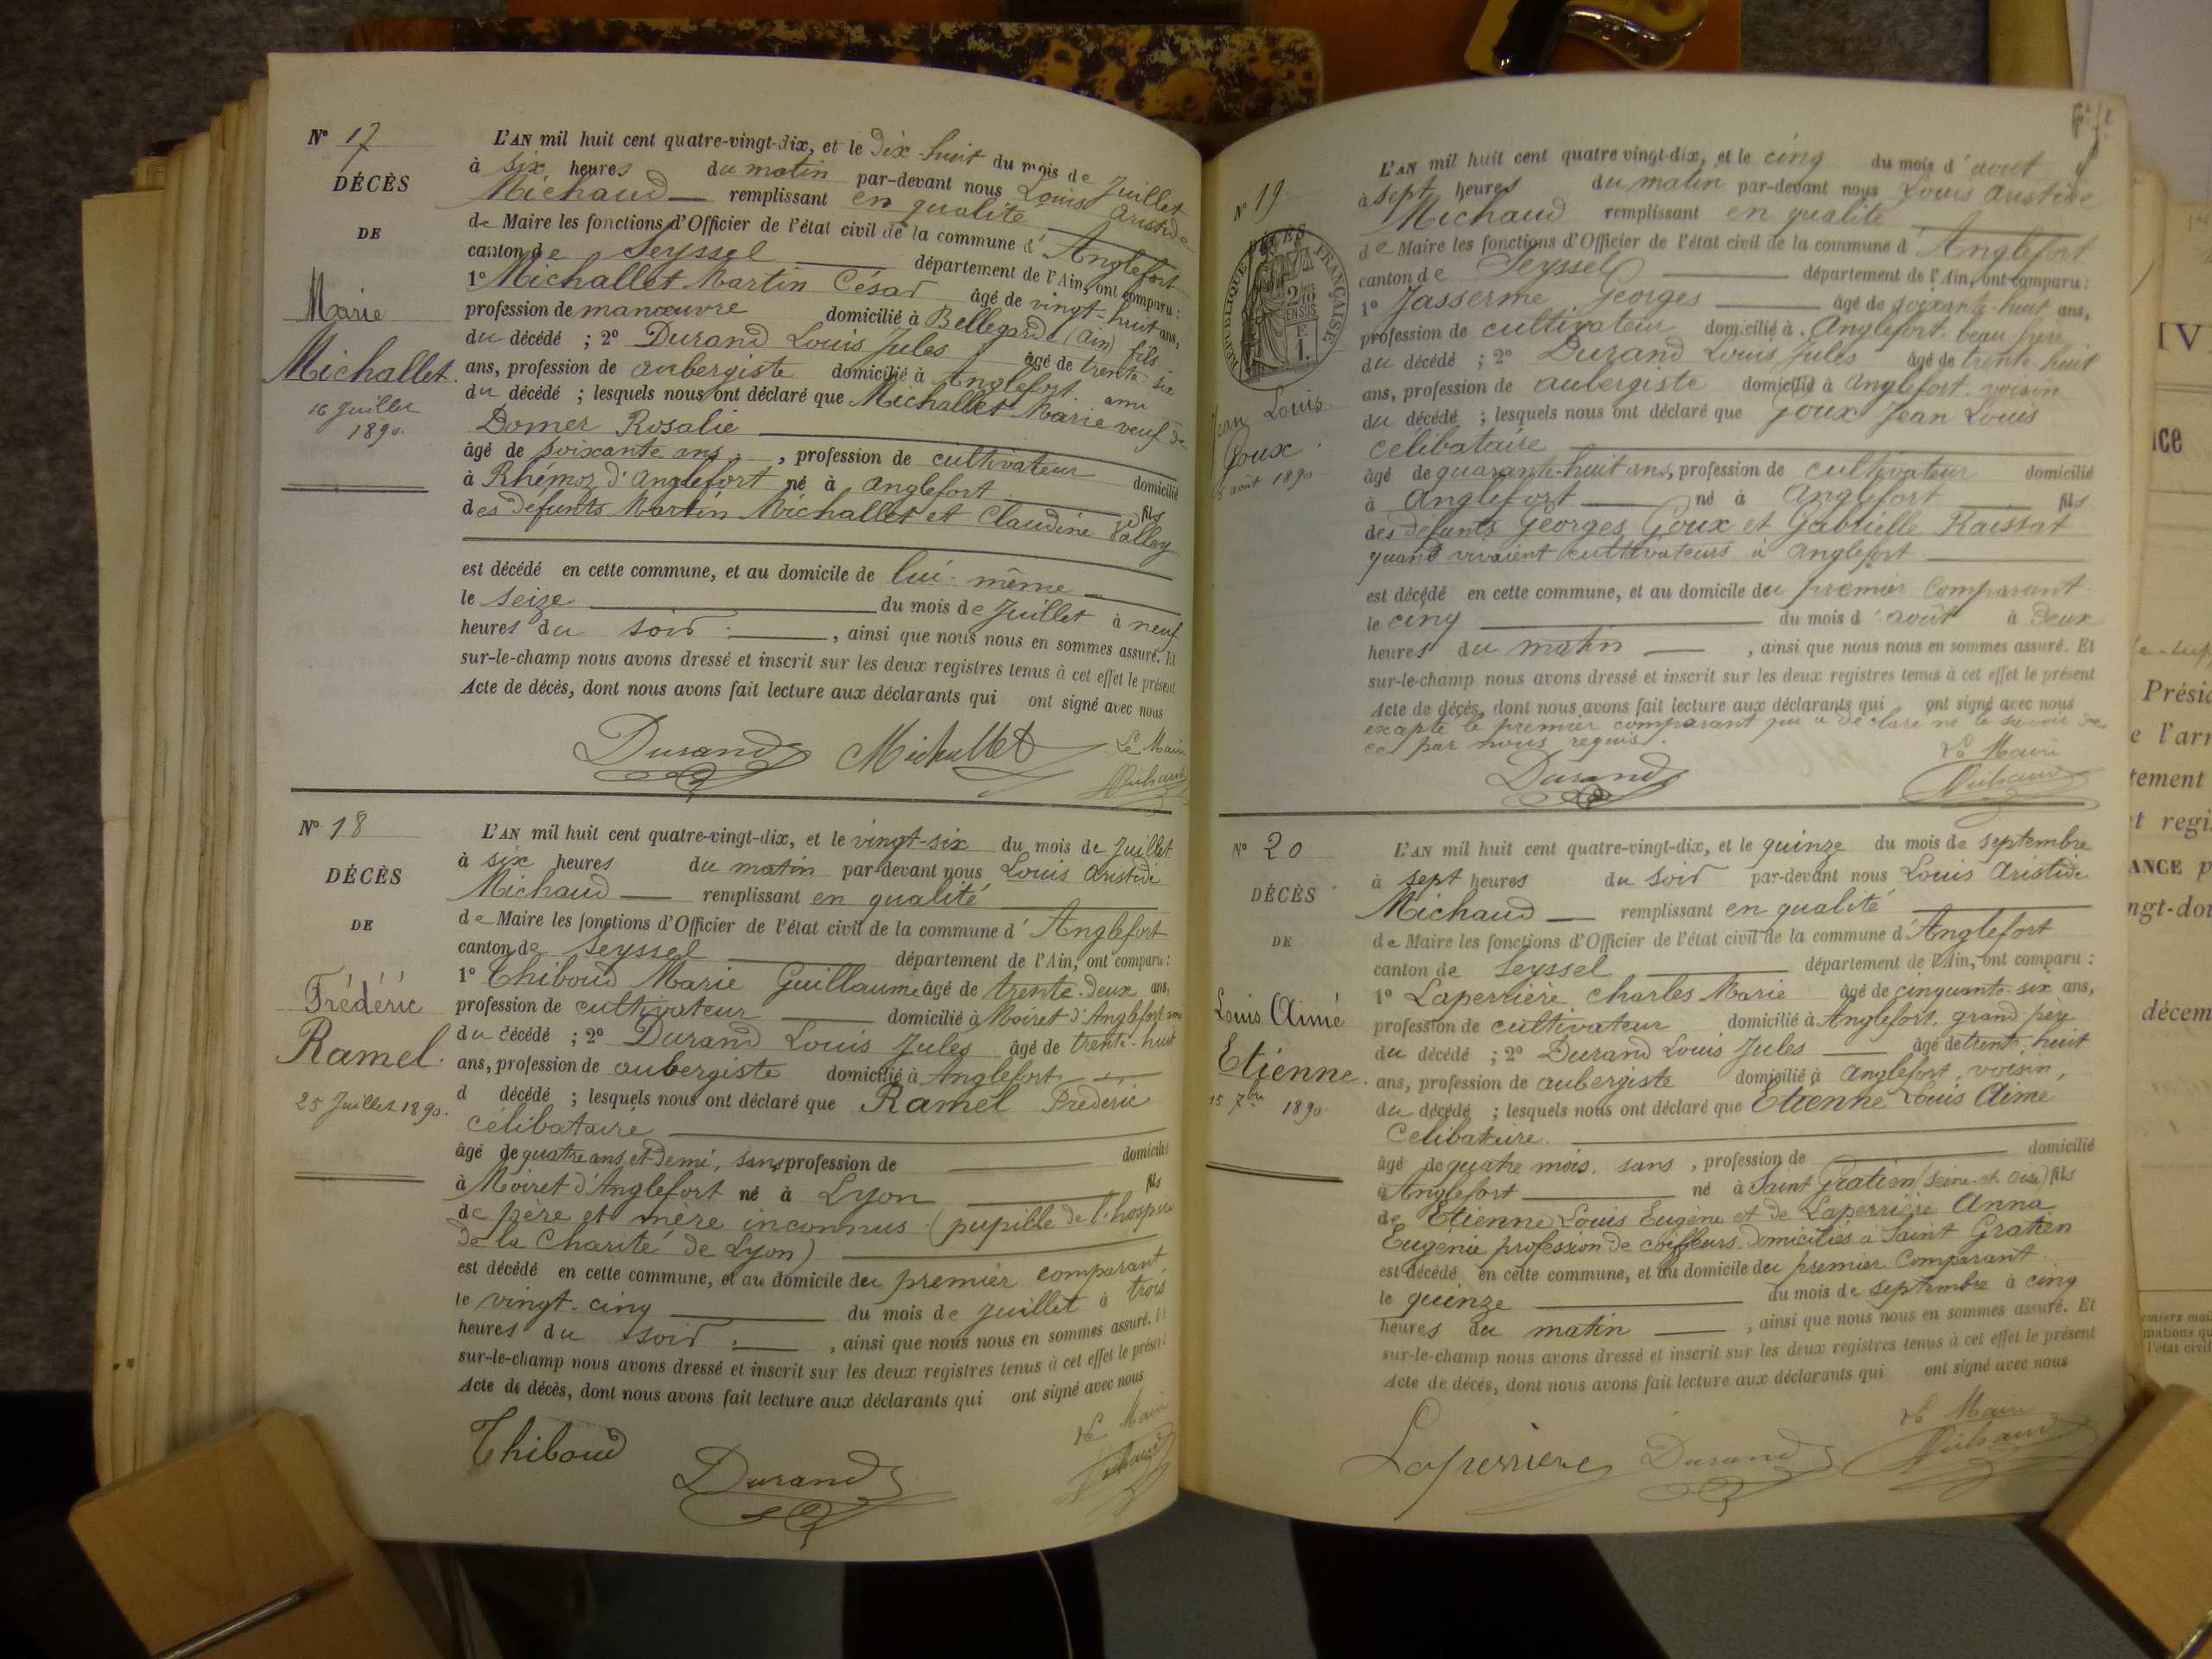 N° 17
DÉCÈS
DE
Marie
Michallet.
16 Juillet
1890.
L'AN mil huit cent quatre-vingt-dix, et le Dix-huit du mois de Juillet
à six heures du matin par-devant nous Louis Aristide
Michaud remplissant en qualité
de Maire les fonctions d'Officier de l'état civil de la commune d'Anglefort
canton de Seyssel département de l'Ain, ont comparu :
1° Michallet Martin César âgé de vingt-huit ans,
profession de manœuvre domicilié à Bellegarde (Ain) fils
du décédé ; 2° Durand Louis Jules âgé de trente-six
ans, profession de aubergiste domicilié à Anglefort. ami
du décédé ; lesquels nous ont déclaré que Michallet Marie veuf de
Domer Rosalie
âgé de soixante ans, profession de cultivateur domicilié
à Rhémoz d'Anglefort né à Anglefort fils
des défunts Martin Michallet et Claudine Vallay
est décédé en cette commune, et au domicile de lui-même
le seize du mois de Juillet à neuf
heures du soir, ainsi que nous nous en sommes assuré. Et
sur-le-champ nous avons dressé et inscrit sur les deux registres tenus à cet effet le présent
Acte de décès, dont nous avons fait lecture aux déclarants qui ont signé avec nous
Durand Michallet Le Maire
Michaud
N° 18
DÉCÈS
DE
Frédéric
Ramel.
25 Juillet 1890.
L'AN mil huit cent quatre-vingt-dix, et le vingt-six du mois de Juillet
à six heures du matin par-devant nous Louis Aristide
Michaud remplissant en qualité
de Maire les fonctions d'Officier de l'état civil de la commune d'Anglefort
canton de Seyssel département de l'Ain, ont comparu :
1° Thiboud Marie Guillaume âgé de trente-deux ans,
profession de cultivateur domicilié à Moiret d'Anglefort ami
du décédé ; 2° Durand Louis Jules âgé de trente-huit
ans, profession de aubergiste domicilié à Anglefort
d décédé ; lesquels nous ont déclaré que Ramel Frédéric
célibataire
âgé de quatre ans et demi, sans profession de domicilié
à Moiret d'Anglefort né à Lyon fils
de père et mère inconnus (pupille de l'hospice
de la Charité de Lyon)
est décédé en cette commune, et au domicile du premier comparant,
le vingt-cinq du mois de Juillet à trois
heures du soir, ainsi que nous nous en sommes assuré. Et
sur-le-champ nous avons dressé et inscrit sur les deux registres tenus à cet effet le présent
Acte de décès, dont nous avons fait lecture aux déclarants qui ont signé avec nous
Thiboud Durand Le Maire
Michaud
N° 19
DÉCÈS
RÉPUBLIQUE FRANÇAISE
Jean Louis
Goux.
5 août 1890
L'AN mil huit cent quatre vingt-dix, et le cinq du mois d'août
à sept heures du matin par-devant nous Louis Aristide
Michaud remplissant en qualité
de Maire les fonctions d'Officier de l'état civil de la commune d'Anglefort
canton de Seyssel département de l'Ain, ont comparu :
1° Jasserme Georges âgé de soixante-huit ans,
profession de cultivateur domicilié à Anglefort. beau frère
du décédé ; 2° Durand Louis Jules âgé de trente-huit
ans, profession de aubergiste domicilié à Anglefort. voisin
du décédé ; lesquels nous ont déclaré que Goux Jean Louis
célibataire
âgé de quarante-huit ans, profession de cultivateur domicilié
à Anglefort né à Anglefort fils
des défunts Georges Goux et Gabrielle Raissat
quand vivaient cultivateurs à Anglefort
est décédé en cette commune, et au domicile du premier comparant
le cinq du mois d'août à deux
heures du matin, ainsi que nous nous en sommes assuré. Et
sur-le-champ nous avons dressé et inscrit sur les deux registres tenus à cet effet le présent
Acte de décès, dont nous avons fait lecture aux déclarants qui ont signé avec nous
excepté le premier comparant qui a déclaré ne le savoir de
ce par nous requis.
Durand Le Maire
Michaud
N° 20
DÉCÈS
DE
Louis Aimé
Etienne.
15 7bre 1890
L'AN mil huit cent quatre-vingt-dix, et le quinze du mois de septembre
à sept heures du soir par-devant nous Louis Aristide
Michaud remplissant en qualité
de Maire les fonctions d'Officier de l'état civil de la commune d'Anglefort
canton de Seyssel département de l'Ain, ont comparu :
1° Laperrière Charles Marie âgé de cinquante-six ans,
profession de cultivateur domicilié à Anglefort. grand-père
du décédé ; 2° Durand Louis Jules âgé de trente-huit
ans, profession de aubergiste domicilié à Anglefort, voisin,
du décédé ; lesquels nous ont déclaré que Etienne Louis Aimé
célibataire.
âgé de quatre mois. sans, profession de domicilié
à Anglefort né à Saint Gratien (Seine-et-Oise) fils
de Etienne Louis Eugène et de Laperrière Anna
Eugénie profession de coiffeurs. domiciliés à Saint Gratien
est décédé en cette commune, et au domicile du premier comparant.
le quinze du mois de septembre à cinq
heures du matin, ainsi que nous nous en sommes assuré. Et
sur-le-champ nous avons dressé et inscrit sur les deux registres tenus à cet effet le présent
Acte de décès, dont nous avons fait lecture aux déclarants qui ont signé avec nous
Laperriere Durand Le Maire
Michaud